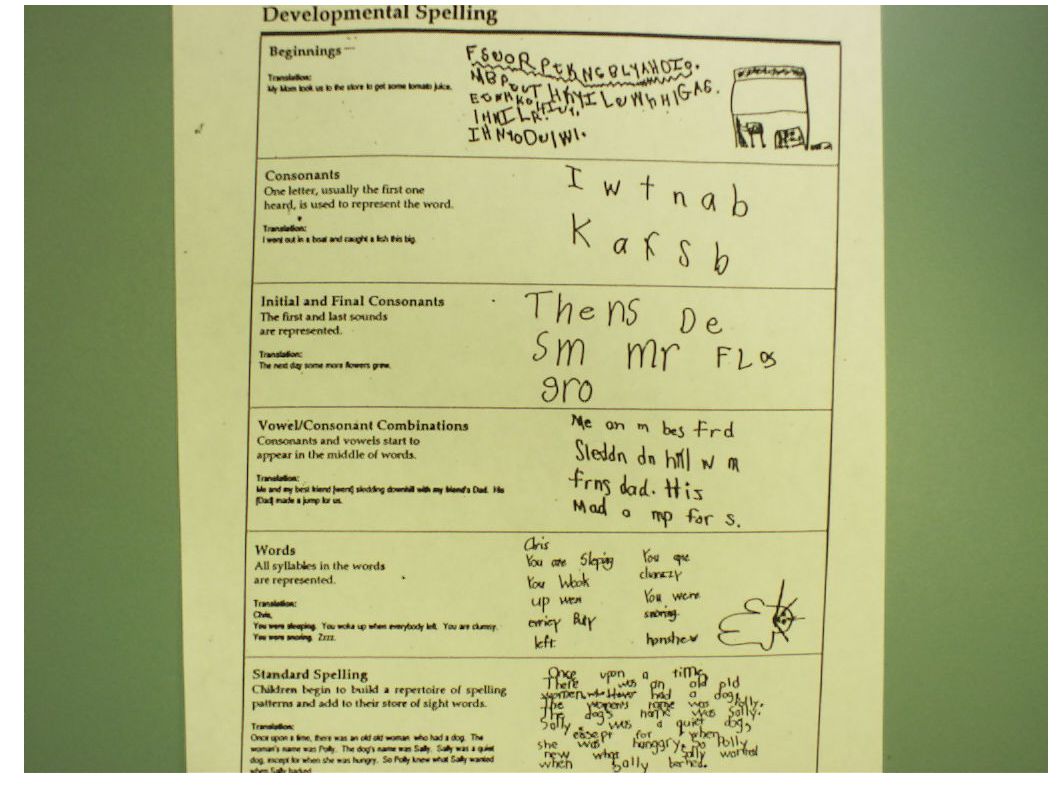 Developmental Spelling
Beginnings
Translation:
My Mom took us to the store to get some tomato juice.
FSUORPtKNGBLYAHDIG.
Consonants
One letter, usually the first one
heard, is used to represent the word.
Translation:
I went out in a boat and caught a fish this big.
I w t n a b
K a f S b
Initial and Final Consonants
The first and last sounds
are represented.
Translation:
The next day some more flowers grew.
The nS De
Sm mr FLos
gro
Vowel/Consonant Combinations
Consonants and vowels start to
appear in the middle of words.
Translation:
Me and my best friend [went] sledding downhill with my friend's Dad. His
[Dad] made a jump for us.
Me an m bes frd
Sleddn dn hill w m
frns dad. His
Mad a mp for s.
Words
All syllables in the words
are represented.
Translation:
Chris,
You were sleeping. You woke up when everybody left. You are clumsy.
You were snoring. Zzzz.
Chris
You are Sleping
You Wook
up wen
left.
You are
You were
snoring.
Standard Spelling
Children begin to build a repertoire of spelling
patterns and add to their store of sight words.
Translation:
Once upon a time, there was an old old woman who had a dog. The
woman's name was Polly. The dog's name was Sally. Sally was a quiet
dog, except for when she was hungry. So Polly knew what Sally wanted
when Sally barked.
Once upon a time,
There was an old old
women, who had a dog,
The women's name was Polly.
The dog's name was Sally.
Sally was a quiet dog,
easept for when
she was hunggry, so Polly
new what Sally wanted
when Sally barked.